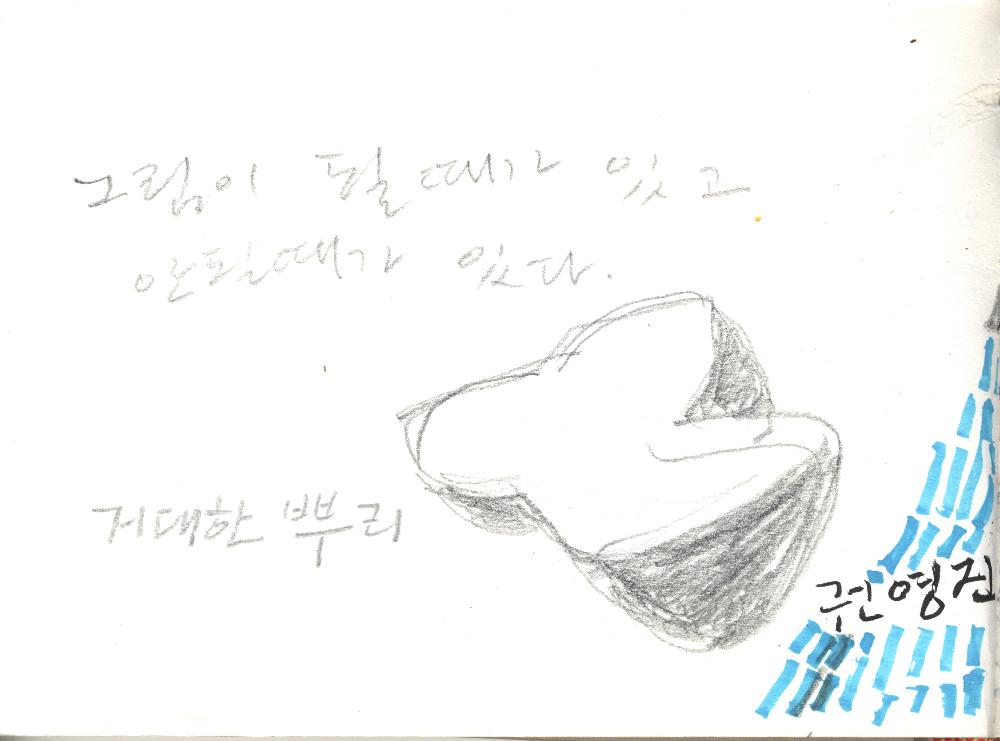 그림이 될 때가 있고
안될때가 있다.
거대한 뿌리
권영진